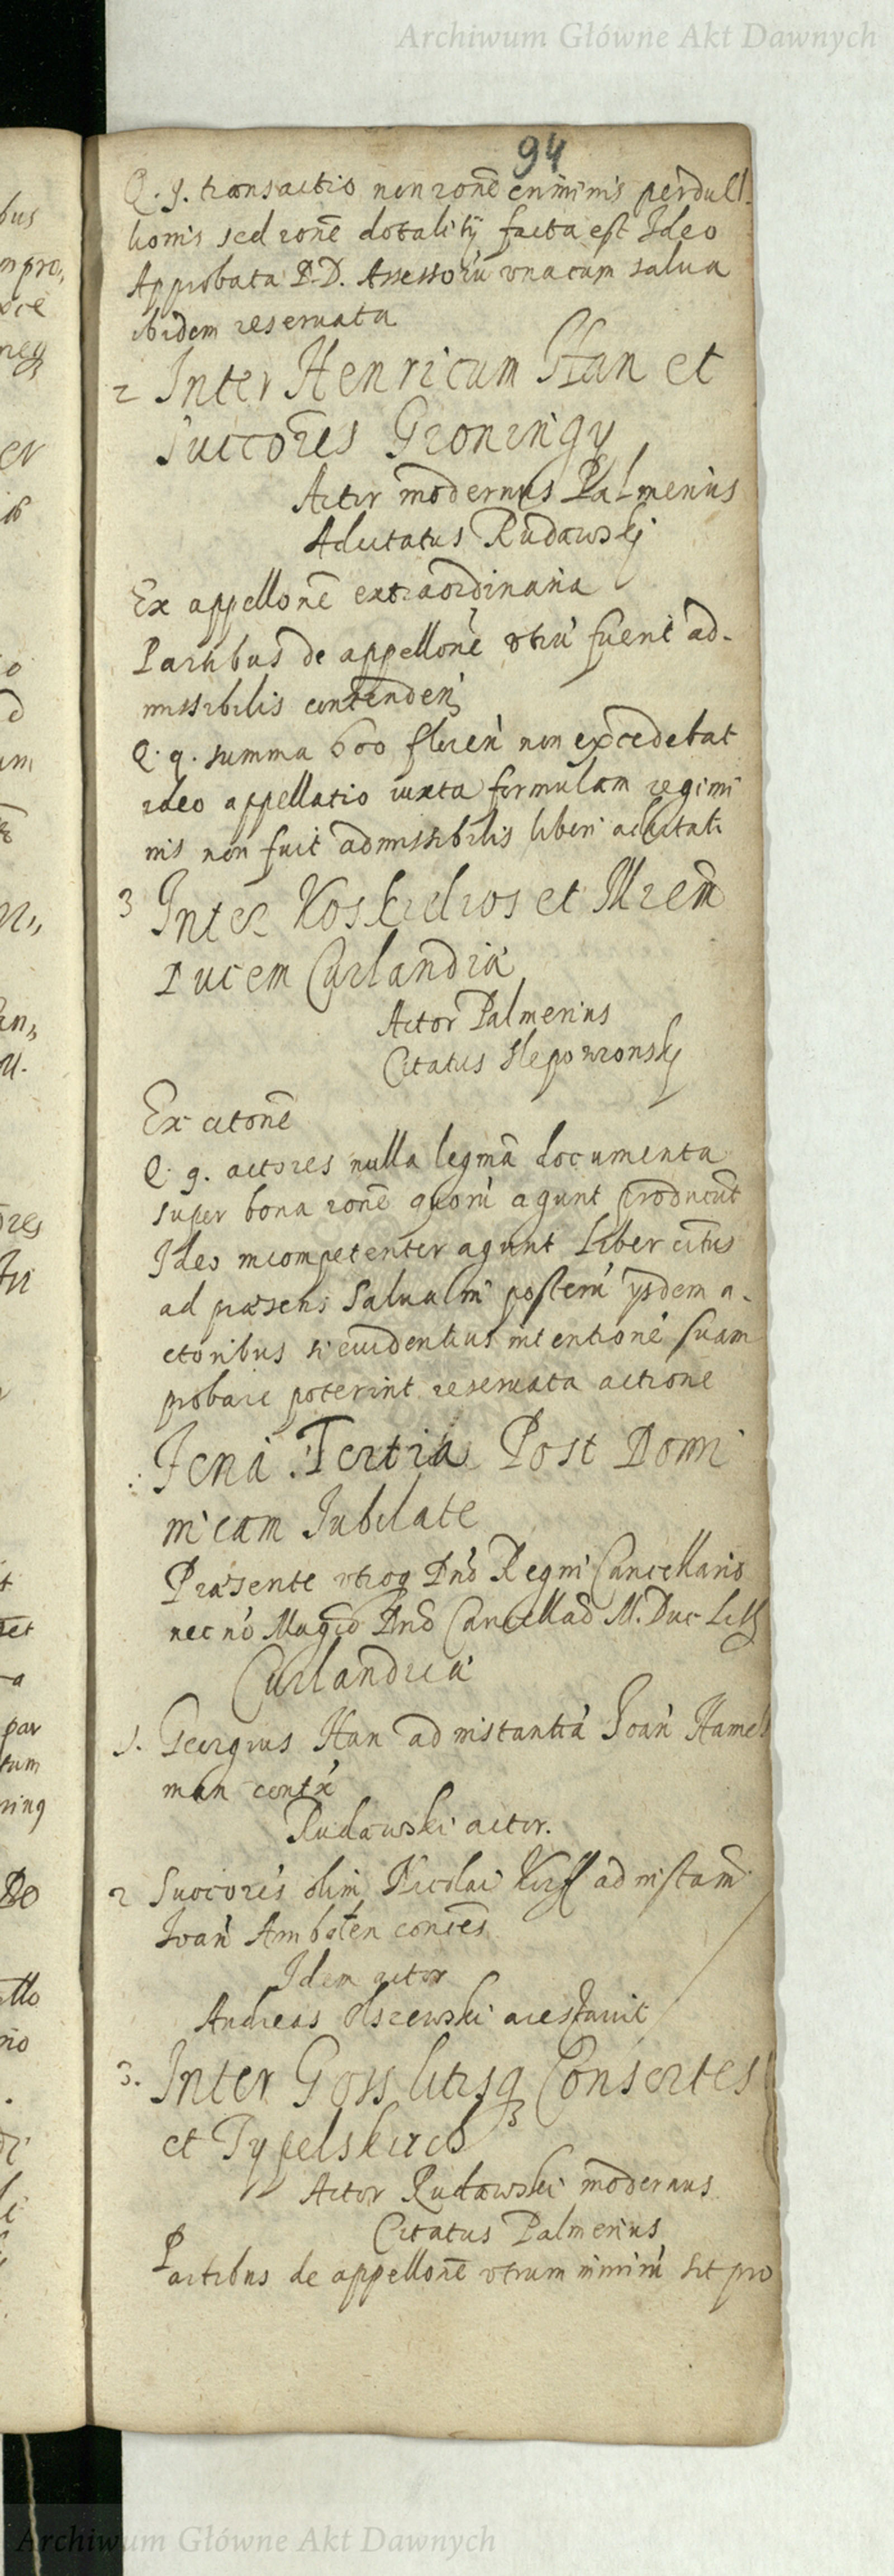 Archiwum Główne Akt Dawnych
94
Q. q. transactio non ronē criminis perduel-
lionis sed ronē dotalitij facta est Ideo
Approbata D.D. Assessorū una cum salua
ibidem reseruata
2 Inter Henricum Han et
Succōres Groningy
Actor modernus Palmerius
Adcitatus Rudawskj
Ex appellonē extraordinaria
Partibus de appellonē utrū fuerit ad-
missibilis contendeñ
Q. q. summa 600 floreñ non excedebat
ideo appellatio iuxta formulam regimi
nis non fuit admissibilis liberi adcitati
3 Inter Koskulios et Illrem
Ducem Curlandiæ
Actor Palmerius
Citatus Slepowronskj
Ex citonē
Q. q. actores nulla legmā documenta
super bona ronē quorū agunt producūt
Ideo incompetenter agunt Liber citus
ad præsens Salua in posterū ysdem a-
ctoribus si euidentius intentionē suam
probare poterint reseruata actione
Feria Tertia Post Domi
nicam Jubilate
Præsente utroq Dnō Regni Cancellario
nec nō Magco Dnō Cancellar M. Duc Litt
Curlandica
1. Georgius Han ad instantiā Joañ Hamel
man contx
Rudawski actor.
2 Succores olim Nicolai ad instam
Joañ Amboten
Idem actor
Andreas Olszewski arestauit
3. Inter Goss litisq Consortes
et Typelskirch
Actor Rudawski modernus
Citatus Palmerius
Partibus de appellonē utrum nimirū sit pro
Archiwum Główne Akt Dawnych